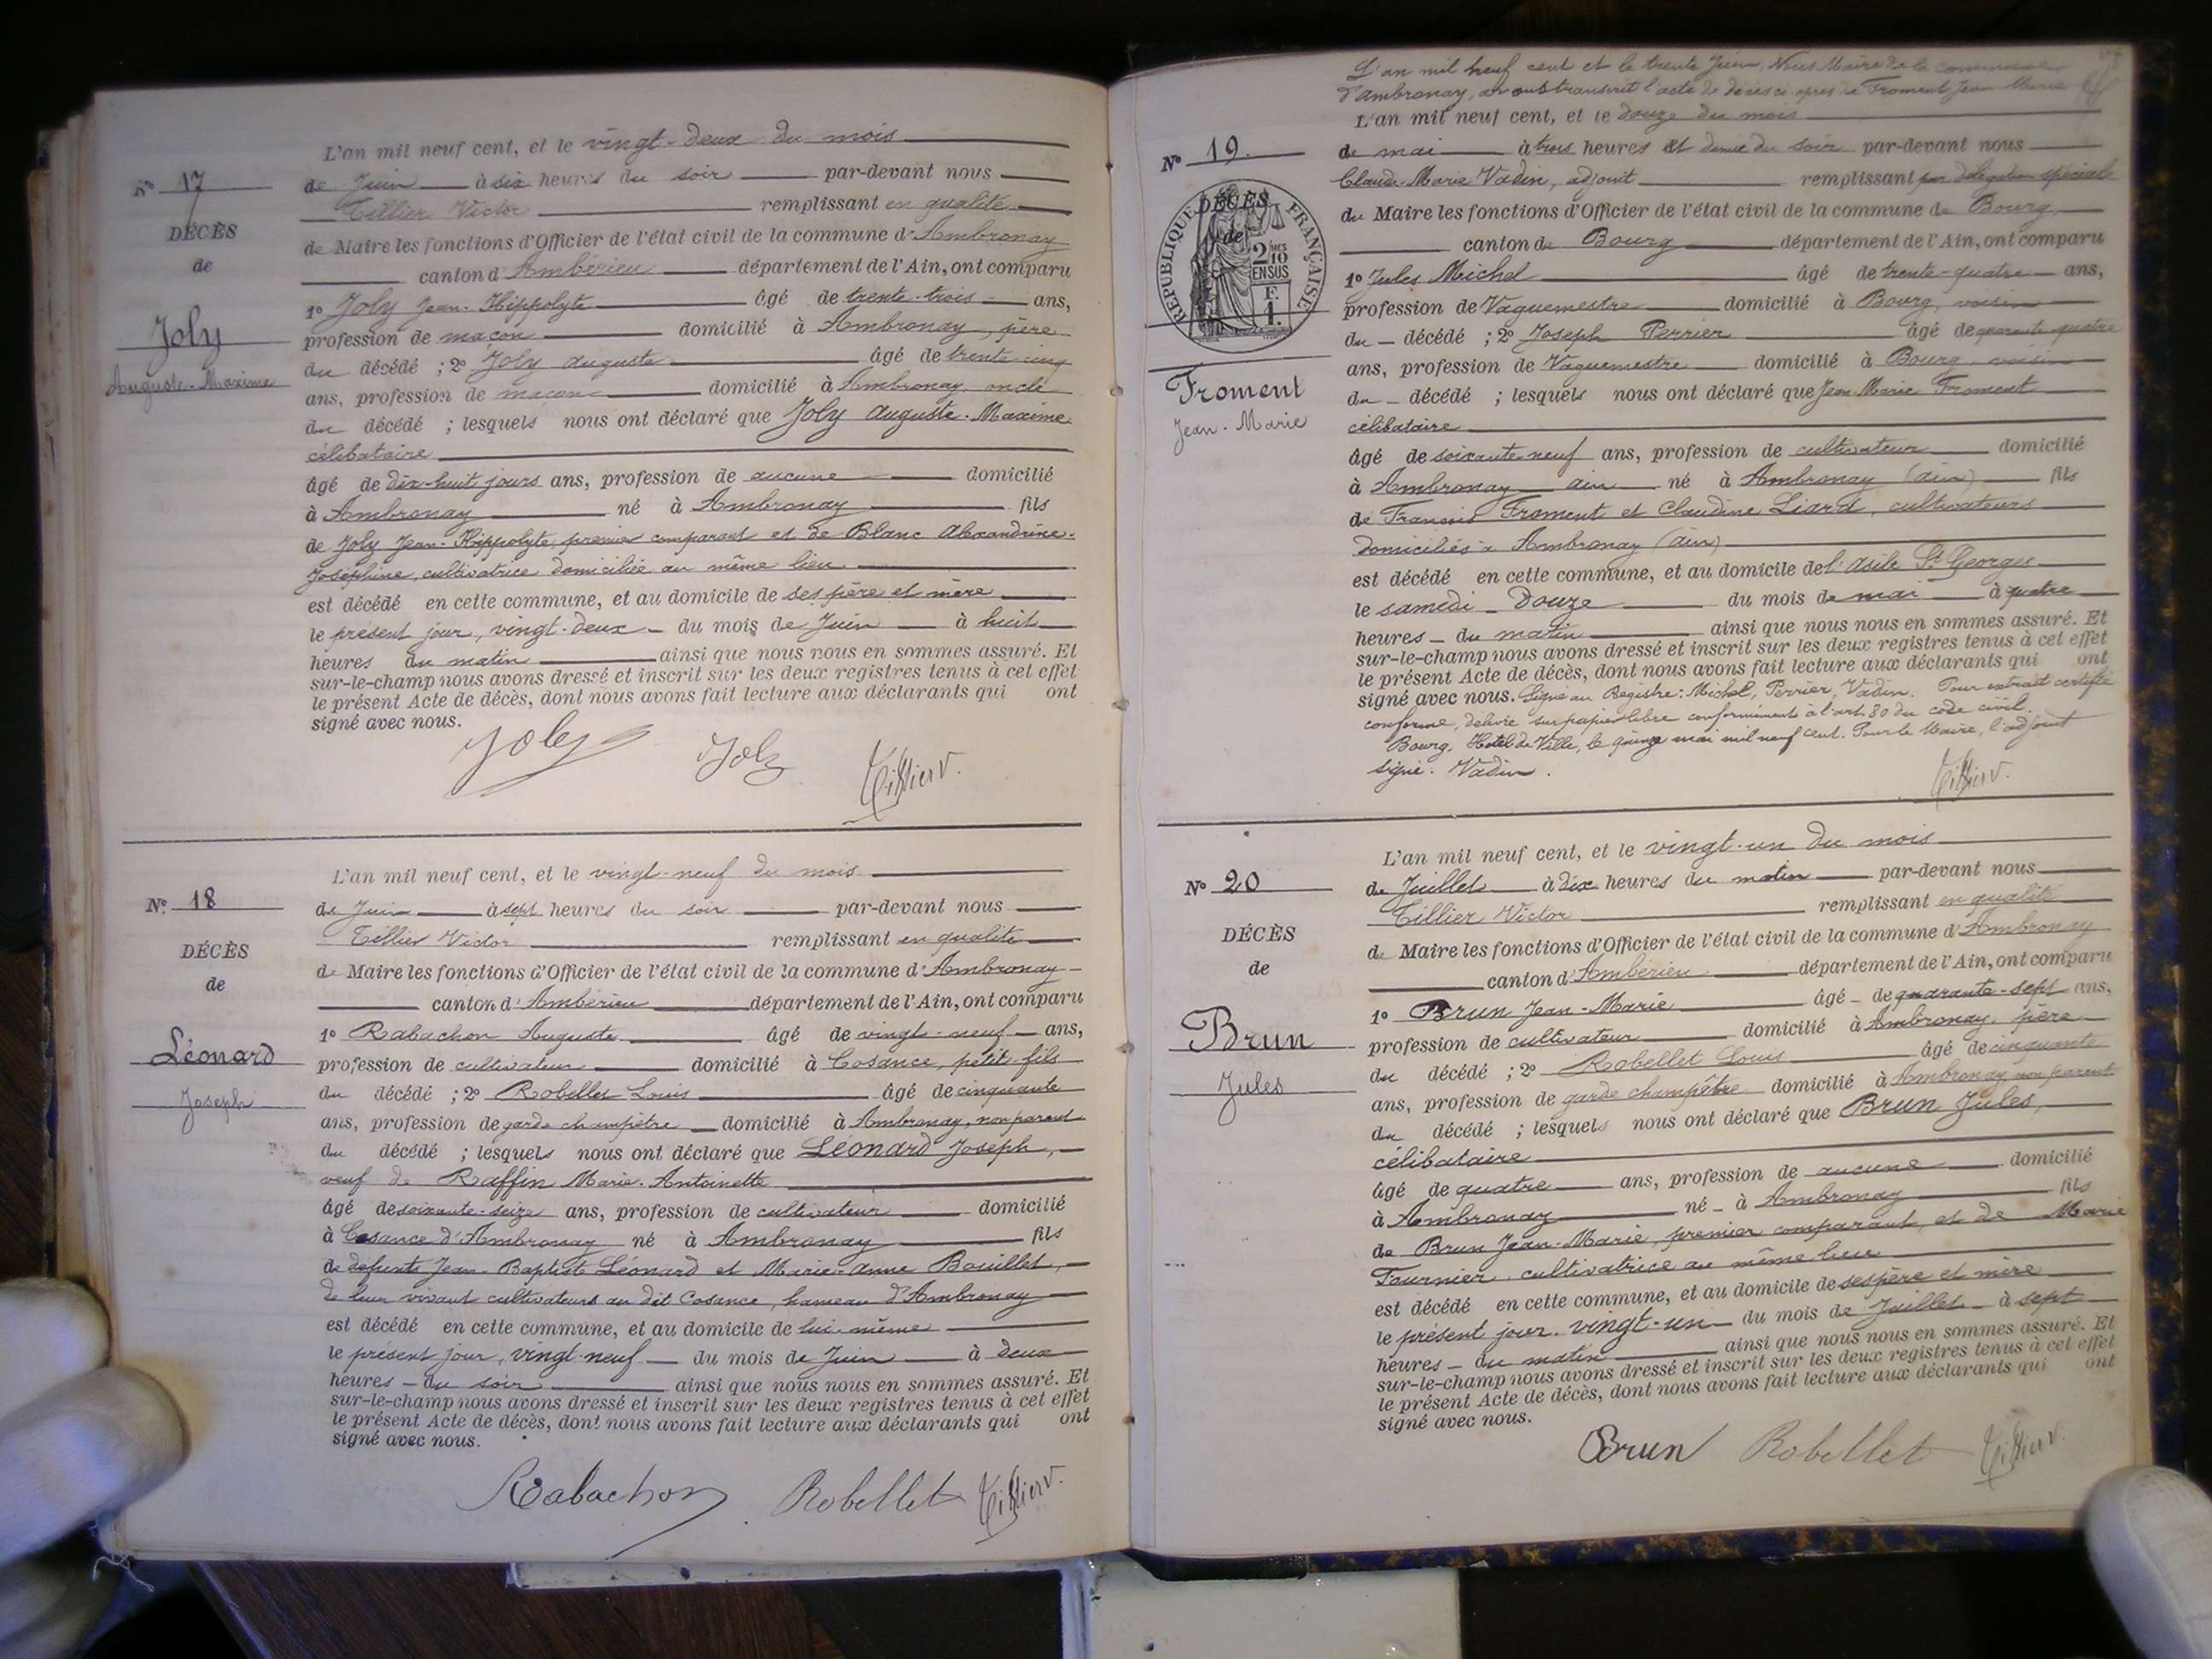 N° 17
DÉCÈS
de
Joly
Auguste-Maxime
L'an mil neuf cent, et le vingt-deux du mois
de Juin à six heures du soir par-devant nous
Tillier Victor remplissant en qualité
de Maire les fonctions d'Officier de l'état civil de la commune d'Ambronay
canton d'Ambérieu département de l'Ain, ont comparu
1° Joly Jean-Hippolyte âgé de trente-trois ans,
profession de maçon domicilié à Ambronay, père
du décédé ; 2° Joly Auguste âgé de trente-cinq
ans, profession de maçon domicilié à Ambronay, oncle
du décédé ; lesquels nous ont déclaré que Joly Auguste-Maxime
célibataire
âgé de dix-huit jours ans, profession de aucune domicilié
à Ambronay né à Ambronay fils
de Joly Jean-Hippolyte, premier comparant et de Blanc Alexandrine-
Joséphine, cultivatrice domiciliée au même lieu
est décédé en cette commune, et au domicile de ses père et mère
le présent jour, vingt-deux du mois de Juin à huit
heures du matin ainsi que nous nous en sommes assuré. Et
sur-le-champ nous avons dressé et inscrit sur les deux registres tenus à cet effet
le présent Acte de décès, dont nous avons fait lecture aux déclarants qui ont
signé avec nous.
Joly Joly Tillier V.
N° 18
DÉCÈS
de
Léonard
Joseph
L'an mil neuf cent, et le vingt-neuf du mois
de Juin à sept heures du soir par-devant nous
Tillier Victor remplissant en qualité
de Maire les fonctions d'Officier de l'état civil de la commune d'Ambronay
canton d'Ambérieu département de l'Ain, ont comparu
1° Rabachon Auguste âgé de vingt-neuf ans,
profession de cultivateur domicilié à Cosance, petit-fils
du décédé ; 2° Robellet Louis âgé de cinquante
ans, profession de garde champêtre domicilié à Ambronay, non parent
du décédé ; lesquels nous ont déclaré que Léonard Joseph,
veuf de Raffin Marie-Antoinette
âgé de soixante-seize ans, profession de cultivateur domicilié
à Cosance d'Ambronay né à Ambronay fils
de défunts Jean-Baptiste Léonard et Marie-Anne Bouillet,
de leur vivant cultivateurs au dit Cosance, hameau d'Ambronay
est décédé en cette commune, et au domicile de lui-même
le présent jour, vingt-neuf du mois de Juin à deux
heures du soir ainsi que nous nous en sommes assuré. Et
sur-le-champ nous avons dressé et inscrit sur les deux registres tenus à cet effet
le présent Acte de décès, dont nous avons fait lecture aux déclarants qui ont
signé avec nous.
Rabachon Robellet Tillier V.
L'an mil neuf cent et le trente Juin, Nous Maire de la commune
d'Ambronay, avons transcrit l'acte de décès ci-après de Froment Jean-Marie
N° 19.
DÉCÈS
de
RÉPUBLIQUE FRANÇAISE
2/10 EN SUS
F. 1.
Froment
Jean-Marie
L'an mil neuf cent, et le douze du mois
de mai à trois heures et demie du soir par-devant nous
Claude-Marie Vadin, adjoint remplissant par délégation spéciale
du Maire les fonctions d'Officier de l'état civil de la commune de Bourg,
canton de Bourg département de l'Ain, ont comparu
1° Jules Michel âgé de trente-quatre ans,
profession de Vaguemestre domicilié à Bourg, voisin
du décédé ; 2° Joseph Perrier âgé de quarante quatre
ans, profession de Vaguemestre domicilié à Bourg, voisin
du décédé ; lesquels nous ont déclaré que Jean Marie Froment
célibataire
âgé de soixante-neuf ans, profession de cultivateur domicilié
à Ambronay ain né à Ambronay (ain) fils
de François Froment et Claudine Liard, cultivateurs
domiciliés à Ambronay (ain)
est décédé en cette commune, et au domicile de l'asile St Georges
le samedi Douze du mois de mai à quatre
heures du matin ainsi que nous nous en sommes assuré. Et
sur-le-champ nous avons dressé et inscrit sur les deux registres tenus à cet effet
le présent Acte de décès, dont nous avons fait lecture aux déclarants qui ont
signé avec nous. Signé au Registre: Michel, Perrier, Vadin. Pour extrait certifié
conforme, délivré sur papier libre conformément à l'art. 80 du code civil.
Bourg, Hôtel de Ville, le quinze mai mil neuf cent. Pour le Maire, l'adjoint
signé. Vadin.
Tillier V.
N° 20
DÉCÈS
de
Brun
Jules
L'an mil neuf cent, et le vingt-un du mois
de Juillet à dix heures du matin par-devant nous
Tillier Victor remplissant en qualité
de Maire les fonctions d'Officier de l'état civil de la commune d'Ambronay
canton d'Ambérieu département de l'Ain, ont comparu
1° Brun Jean-Marie âgé de quarante-sept ans,
profession de cultivateur domicilié à Ambronay, père
du décédé ; 2° Robellet Louis âgé de cinquante
ans, profession de garde champêtre domicilié à Ambronay non parent
du décédé ; lesquels nous ont déclaré que Brun Jules,
célibataire
âgé de quatre ans, profession de aucune domicilié
à Ambronay né à Ambronay fils
de Brun Jean-Marie, premier comparant, et de Marie
Fournier, cultivatrice au même lieu
est décédé en cette commune, et au domicile de ses père et mère
le présent jour, vingt-un du mois de Juillet à sept
heures du matin ainsi que nous nous en sommes assuré. Et
sur-le-champ nous avons dressé et inscrit sur les deux registres tenus à cet effet
le présent Acte de décès, dont nous avons fait lecture aux déclarants qui ont
signé avec nous.
Brun Robellet Tillier V.